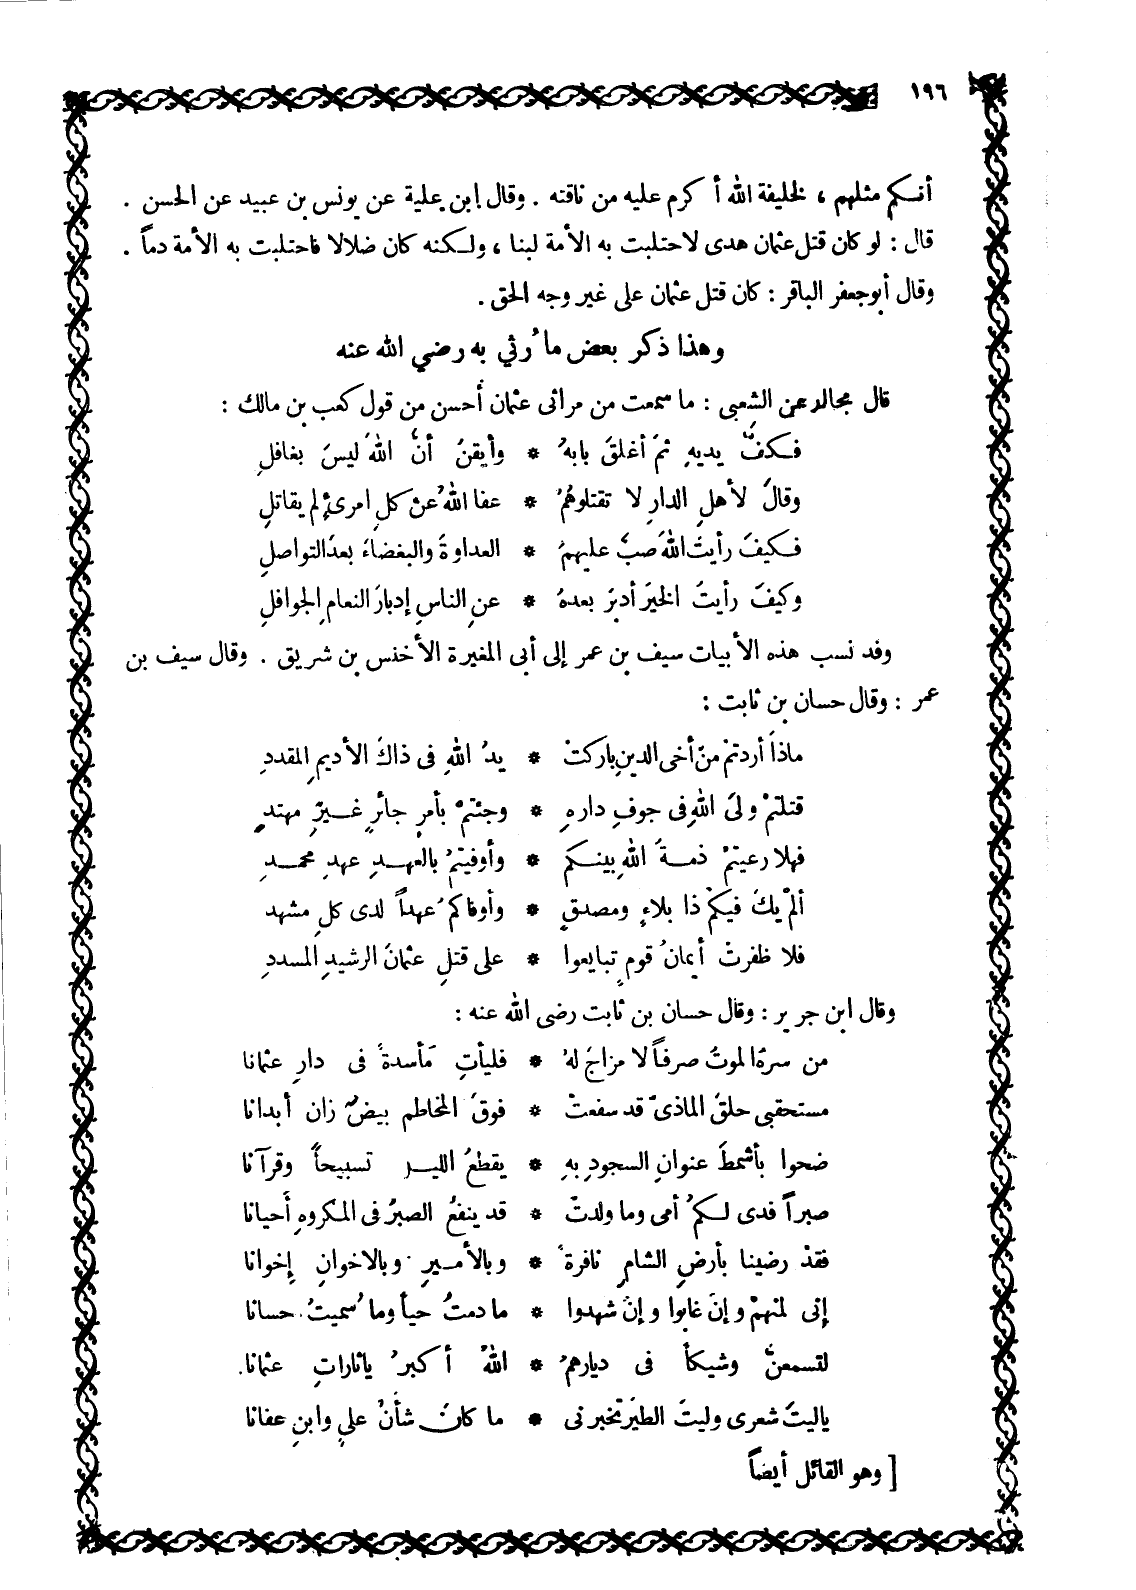 ١٩٦
أنكم مثلهم ، لخليفة الله أكرم عليه من ناقته . وقال ابن علية عن يونس بن عبيد عن الحسن .
قال : لو كان قتل عثمان هدى لاحتلبت به الأمة لبنا ، ولكنه كان ضلالا فاحتلبت به الأمة دماً .
وقال أبو جعفر الباقر : كان قتل عثمان على غير وجه الحق .
وهذا ذكر بعض ما رُثي به رضي الله عنه
قال مجالد عن الشعبى : ما سمعت من مراثى عثمان أحسن من قول كعب بن مالك :
فكفَّ يديهِ ثمَ أغلقَ بابهُ * وأيقنُ أنَّ اللهَ ليسَ بغافلِ
وقالَ لأهلِ الدارِ لا تقتلوهُمُ * عفا اللهُ عنْ كلِ امرئٍ لم يقاتلِ
فكيفَ رأيتَ اللهَ صبَّ عليهمُ * العداوةَ والبغضاءَ بعدَ التواصلِ
وكيفَ رأيتَ الخيرَ أدبرَ بعدهُ * عنِ الناسِ إدبارَ النعامِ الجوافلِ
وقد نسب هذه الأبيات سيف بن عمر إلى أبى المغيرة الأخنس بن شريق . وقال سيف بن
عمر : وقال حسان بن ثابت :
ماذا أردتمْ منْ أخى الدينِ باركتْ * يدُ اللهِ فى ذاكَ الأديمِ المقددِ
قتلتمْ ولىَ اللهِ فى جوفِ دارهِ * وجئتمْ بأمرٍ جائرٍ غيرِ مهتدِ
فهلا رعيتمْ ذمةَ اللهِ بينكم * وأوفيتمُ بالعهدِ عهدِ محمدِ
ألمْ يكَ فيكمْ ذا بلاءٍ ومصدقٍ * وأوفاكمُ عهداً لدى كلِ مشهد
فلا ظفرتْ أيمانُ قومٍ تبايعوا * على قتلِ عثمانَ الرشيدِ المسددِ
وقال ابن جرير : وقال حسان بن ثابت رضى الله عنه :
من سرهُ الموتُ صرفاً لا مزاجَ لهُ * فليأتِ مأسدةً فى دارِ عثمانا
مستحقبى حلقَ الماذىّ قد سفعتْ * فوقَ المخاطم بيضٌ زان أبدانا
ضحوا بأشمطَ عنوانِ السجودِ بهِ * يقطعُ الليل تسبيحاً وقرآنا
صبراً فدى لكمُ أمى وما ولدتْ * قد ينفعُ الصبرُ فى المكروهِ أحيانا
فقدْ رضينا بأرضِ الشامِ نافرةً * وبالأميرِ وبالاخوانِ إخوانا
إنى لمنهمْ وإنَ غابوا وإنْ شهدوا * ما دمتُ حياً وما سميتُ حسانا
لتسمعنَّ وشيكاً فى ديارهمُ * اللهُ أكبرُ ياثاراتِ عثمانا.
ياليتَ شعرى وليتَ الطيرَ تخبرنى * ما كانَ شأنُ عليٍ وابنِ عفانا
[ وهو القائل أيضاً